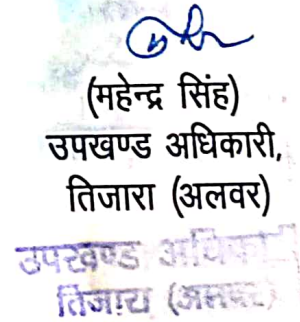 (महेन्द्र सिंह)
उपखण्ड अधिकारी,
तिजारा (अलवर)
उपखण्ड अधिकारी
तिजारा (अलवर)